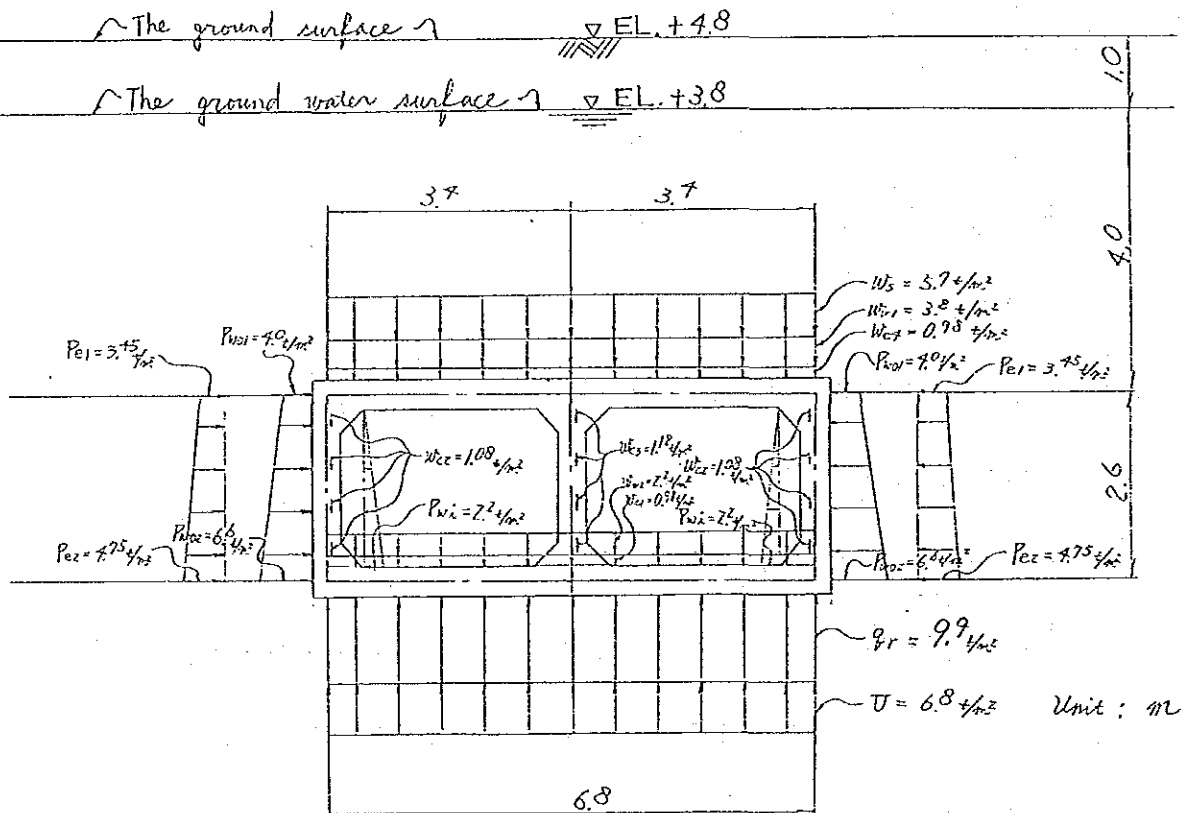 The ground surface
▽ EL. +4.8
1.0
The ground water surface
▽ EL. +3.8
3.4 3.4
4.0
Ws = 5.7 t/m²
Ww1 = 3.8 t/m²
Wc4 = 0.98 t/m²
Pe1 = 3.45 t/m²
Pwo1 = 4.0 t/m²
Pwo1 = 4.0 t/m²
Pe1 = 3.45 t/m²
Wc2 = 1.08 t/m²
Wc3 = 1.18 t/m²
Wc2 = 1.08 t/m²
2.6
Pwi = 2.2 t/m²
Pwi = 2.2 t/m²
Pwo2 = 6.6 t/m²
Pe2 = 4.75 t/m²
Pwo2 = 6.6 t/m²
Pe2 = 4.75 t/m²
qr = 9.9 t/m²
U = 6.8 t/m²
Unit : m
6.8